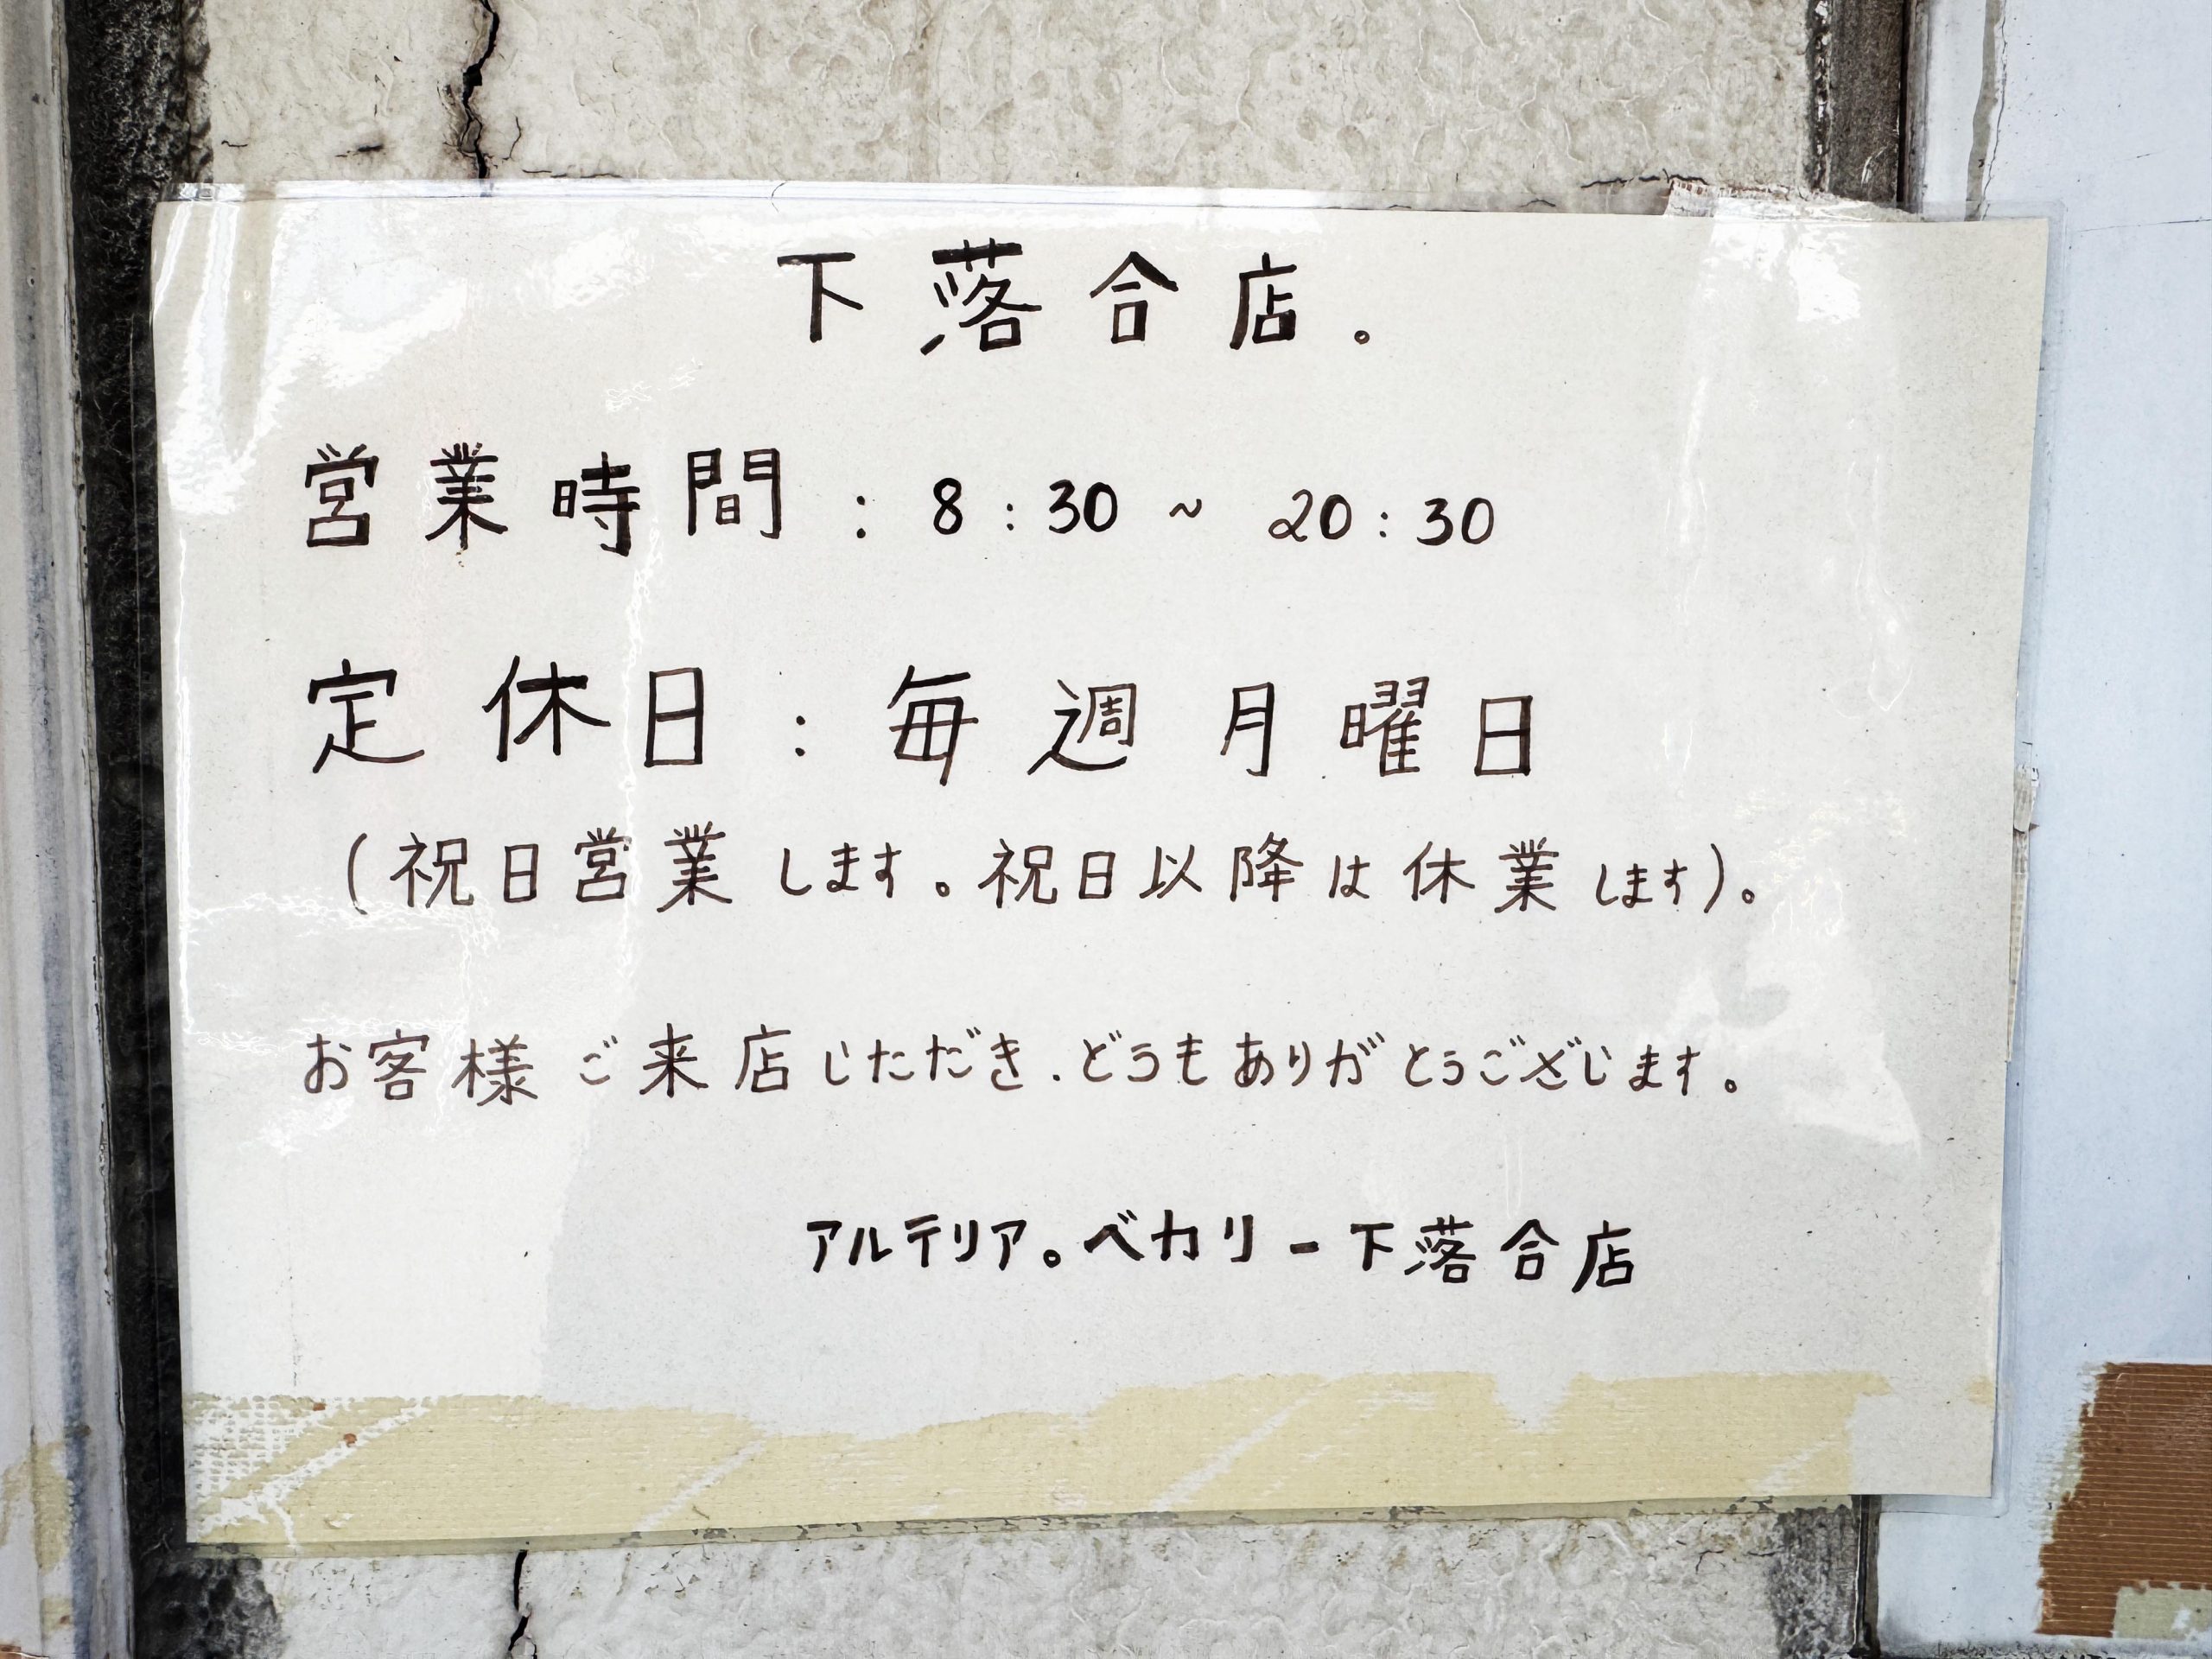 下落合店。
営業時間:8:30~20:30
定休日:毎週月曜日
(祝日営業します。祝日以降は休業します)。
お客様ご来店いただき、どうもありがとうございます。
アルテリア。ベカリー下落合店